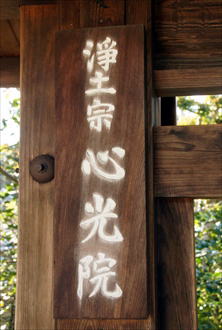 浄土宗心光院